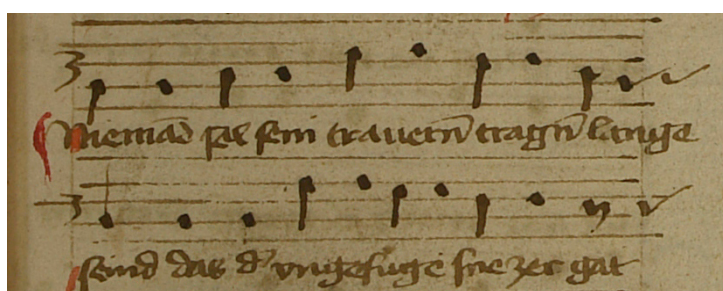 Niemād sol sein trauern̄ tragn̄ lange
seind das d' vngefuge sne zer gat